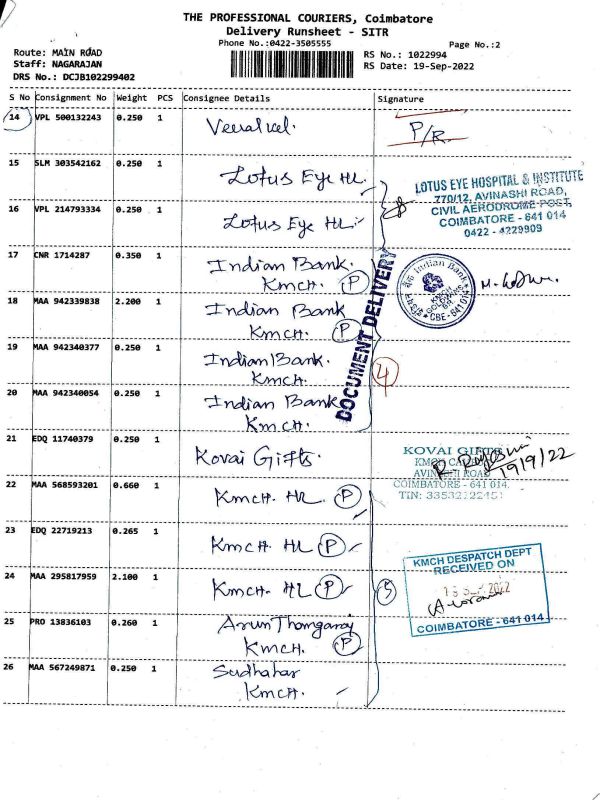 THE PROFESSIONAL COURIERS, Coimbatore
Delivery Runsheet - SITR
Phone No.:0422-3505555
Page No.:2
Route: MAIN ROAD
RS No.: 1022994
Staff: NAGARAJAN
RS Date: 19-Sep-2022
DRS No.: DCJB102299402
S No Consignment No Weight PCS Consignee Details Signature
14 VPL 500132243 0.250 1
P/R.
15 SLM 303542162 0.250 1 Lotus Eye HL.
LOTUS EYE HOSPITAL & INSTITUTE
770/12, AVINASHI ROAD,
CIVIL AERODROME POST,
COIMBATORE - 641 014
0422 - 4229909
16 VPL 214793334 0.250 1 Lotus Eye HL
DOCUMENT DELIVERY
17 CNR 1714287 0.350 1 Indian Bank.
KMCH. P
Indian Bank
KMCH
CBE-641014
18 MAA 942339838 2.200 1 Indian Bank
KMCH. P
19 MAA 942340377 0.250 1 Indian Bank.
KMCH.
4
20 MAA 942340054 0.250 1 Indian Bank
KMCH.
21 EDQ 11740379 0.250 1 Kovai Gifts.
KOVAI GIFTS
KMCH
AVINASHI ROAD
COIMBATORE - 641 014.
TIN: 33532122451
19/9/22
22 MAA 568593201 0.660 1 KMCH. HL. P
23 EDQ 22719213 0.265 1 KMCH. HL P
24 MAA 295817959 2.100 1 KMCH. HL P
5
KMCH DESPATCH DEPT
RECEIVED ON
SEP 2022
COIMBATORE - 641 014
25 PRO 13836103 0.260 1 Arun Thangaraj
KMCH. P
26 MAA 567249871 0.250 1 Sudhahar
KMCH.